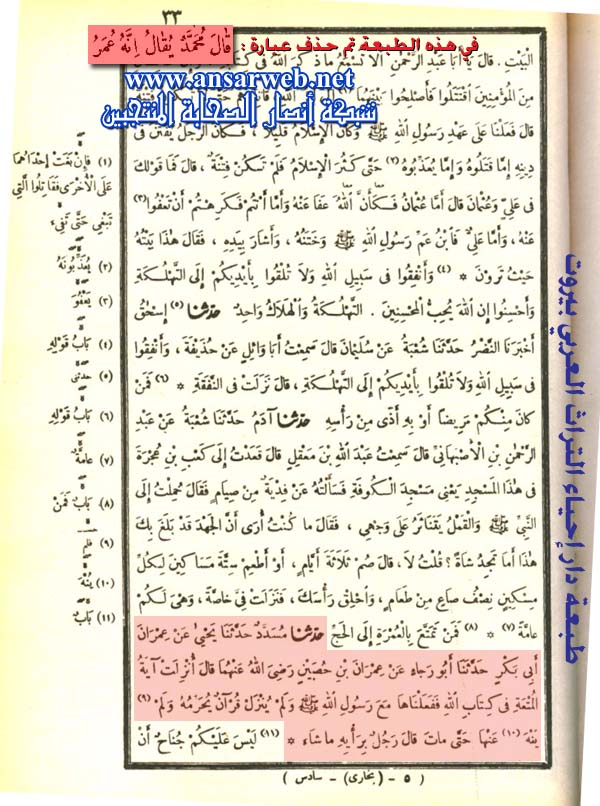 ٣٣
في هذه الطبعة تم حذف عبارة : قَالَ مُحَمَّدٌ يُقَالُ إِنَّهُ عُمَرُ
www.ansarweb.net
شبكة أنصار الصحابة المنتجبين
الْبَيْتِ . قالَ يَا أَبَا عَبْدِ الرَّحْمٰنِ أَلَا تَسْمَعُ ما ذَكَرَ اللهُ فِى كِتَابِهِ
مِنَ الْمُؤْمِنِينَ اقْتَتَلُوا فَأَصْلِحُوا بَيْنَهُمَا
قالَ فَعَلْنَا عَلَى عَهْدِ رَسُولِ اللهِ ﷺ وَكانَ الْإِسْلَامُ قَلِيلًا ، فَكَانَ الرَّجُلُ يُفْتَنُ فِى
دِينِهِ إِمَّا قَتَلُوهُ وَإِمَّا يُعَذِّبُوهُ (٢) حَتَّى كَثُرَ الْإِسْلَامُ فَلَمْ تَكُنْ فِتْنَةٌ ، قالَ فَمَا قَوْلُكَ
فِى عَلِيٍّ وَعُثْمَانَ قالَ أَمَّا عُثْمَانُ فَكَأَنَّ اللهُ عَفَا عَنْهُ وَأَمَّا أَنْتُمْ فَكَرِهْتُمْ أَنْ تَعْفُوا (٣)
عَنْهُ ، وَأَمَّا عَلِيٌّ فَابْنُ عَمِّ رَسُولِ اللهِ ﷺ وَخَتَنُهُ ، وَأَشَارَ بِيَدِهِ ، فَقَالَ هٰذَا بَيْتُهُ
حَيْثُ تَرَوْنَ * (٤) وَأَنْفِقُوا فِى سَبِيلِ اللهِ وَلَا تُلْقُوا بِأَيْدِيكُمْ إِلَى التَّهْلُكَةِ
وَأَحْسِنُوا إِنَّ اللهَ يُحِبُّ الْمُحْسِنِينَ . التَّهْلُكَةُ وَالْهَلَاكُ وَاحِدٌ حَدَّثَنَا (٥) إِسْحٰقُ
أَخْبَرَنَا النَّضْرُ حَدَّثَنَا شُعْبَةُ عَنْ سُلَيْمَانَ قالَ سَمِعْتُ أَبَا وَائِلٍ عَنْ حُذَيْفَةَ ، وَأَنْفِقُوا
فِى سَبِيلِ اللهِ وَلَا تُلْقُوا بِأَيْدِيكُمْ إِلَى التَّهْلُكَةِ ، قالَ نَزَلَتْ فِى النَّفَقَةِ * (٦) فَمَنْ
كانَ مِنْكُمْ مَرِيضًا أَوْ بِهِ أَذًى مِنْ رَأْسِهِ حَدَّثَنَا آدَمُ حَدَّثَنَا شُعْبَةُ عَنْ عَبْدِ
الرَّحْمٰنِ بْنِ الْأَصْبَهَانِيِّ قالَ سَمِعْتُ عَبْدَ اللهِ بْنَ مَعْقِلٍ قالَ قَعَدْتُ إِلَى كَعْبِ بْنِ عُجْرَةَ
فِى هٰذَا الْمَسْجِدِ يَعْنِى مَسْجِدَ الْكُوفَةِ فَسَأَلْتُهُ عَنْ فِدْيَةٌ مِنْ صِيَامٍ فَقَالَ حُمِلْتُ إِلَى
النَّبِيِّ ﷺ وَالْقَمْلُ يَتَنَاثَرُ عَلَى وَجْهِى ، فَقَالَ ما كُنْتُ أُرَى أَنَّ الْجَهْدَ قَدْ بَلَغَ بِكَ
هٰذَا أَمَا تَجِدُ شَاةً ؟ قُلْتُ لَا ، قالَ صُمْ ثَلَاثَةَ أَيَّامٍ ، أَوْ أَطْعِمْ سِتَّةَ مَسَاكِينَ لِكُلِّ
مِسْكِينٍ نِصْفُ صَاعٍ مِنْ طَعَامٍ ، وَاحْلِقْ رَأْسَكَ ، فَنَزَلَتْ فِيَّ خَاصَّةً ، وَهْىَ لَكُمْ
عامَّةً (٧) * (٨) فَمَنْ تَمَتَّعَ بِالْعُمْرَةِ إِلَى الْحَجِّ حَدَّثَنَا مُسَدَّدٌ حَدَّثَنَا يَحْيٰى عَنْ عِمْرَانَ
أَبِى بَكْرٍ حَدَّثَنَا أَبُو رَجَاءٍ عَنْ عِمْرَانَ بْنِ حُصَيْنٍ رَضِىَ اللهُ عَنْهُمَا قالَ أُنْزِلَتْ آيَةُ
الْمُتْعَةِ فِى كِتَابِ اللهِ فَفَعَلْنَاهَا مَعَ رَسُولِ اللهِ ﷺ وَلَمْ يُنْزَلْ قُرْآنٌ يُحَرِّمُهُ وَلَمْ (٩)
يَنْهَ (١٠) عَنْهَا حَتَّى ماتَ قالَ رَجُلٌ بِرَأْيِهِ ما شَاءَ * (١١) لَيْسَ عَلَيْكُمْ جُنَاحٌ أَنْ
( ٥ - بخارى ) - سادس )
(١) فَإِنْ بَغَتْ إِحْدَاهُمَا
عَلَى الْأُخْرَى فَقَاتِلُوا الَّتِى
تَبْغِى حَتَّى تَفِىءَ
(٢) يُعَذِّبُونَهُ
(٣) يَعْفُوَ
(٤) بَابُ قَوْلِهِ
(٥) حدثنى
(٦) بَابُ قَوْلِهِ
(٧) عامَّةٌ
(٨) بَابُ فَمَنْ
(٩) فلم
(١٠) يُنْهَ
(١١) بَابُ
طبعة دار إحياء التراث العربي بيروت